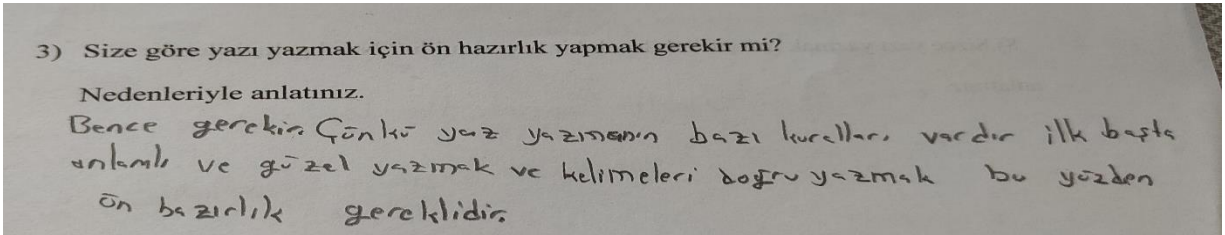 3) Size göre yazı yazmak için ön hazırlık yapmak gerekir mi?
Nedenleriyle anlatınız.
Bence gerekir. Çünkü yaz yazmanın bazı kuralları vardır ilk başta
anlamlı ve güzel yazmak ve kelimeleri doğru yazmak bu yüzden
ön hazırlık gereklidir.